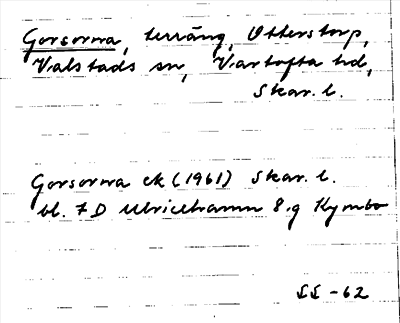 Gorsorna, terräng, Utterstorp,
Valstads sn, Vartofta hd,
Skar. l.
Gorsorna ek (1961) Skar. l.
bl. 7D Ulricehamn 8.g Kymbo
SS -62